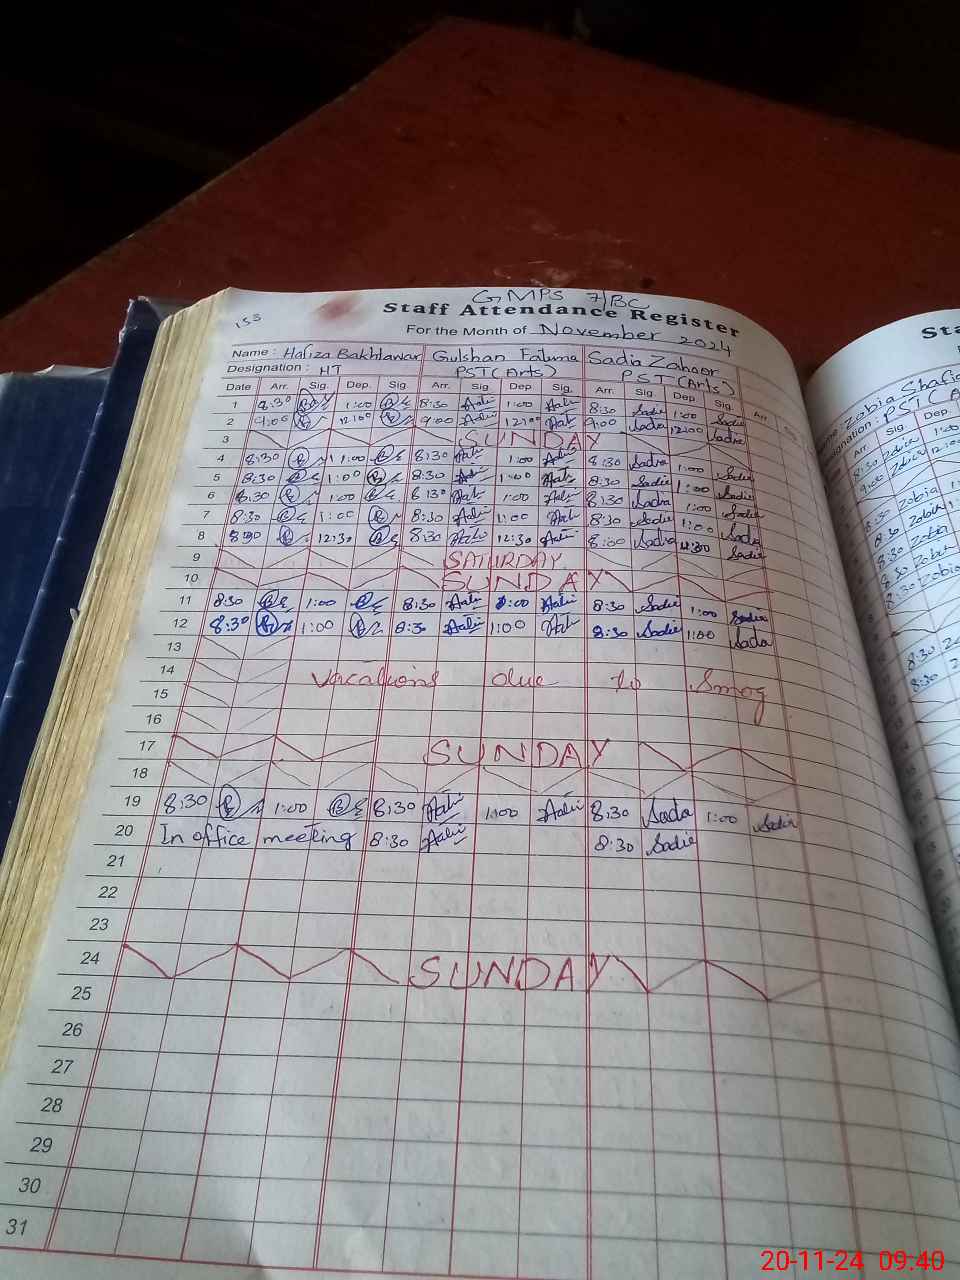 153
GMPS 7/BC
Staff Attendance Register
For the Month of November 2024
Name : Hafiza Bakhtawar Gulshan Fatima Sadia Zahoor
Designation : HT PST (Arts) PST (Arts)
Date Arr. Sig. Dep. Sig. Arr. Sig. Dep. Sig. Arr. Sig. Dep. Sig. Arr Sig.
1 8:30 1:00 8:30 1:00 8:30 Sadia 1:00 Sadia
2 9:00 12:00 9:00 12:00 9:00 Sadia 12:00 Sadia
3 SUNDAY
4 8:30 1:00 8:30 1:00 8:30 Sadia 1:00 Sadia
5 8:30 1:00 8:30 1:00 8:30 Sadia 1:00 Sadia
6 8:30 1:00 8:30 1:00 8:30 Sadia 1:00 Sadia
7 8:30 1:00 8:30 1:00 8:30 Sadia 1:00 Sadia
8 8:30 12:30 8:30 12:30 8:30 Sadia 12:30 Sadia
9 SATURDAY
10 SUNDAY
11 8:30 1:00 8:30 1:00 8:30 Sadia 1:00 Sadia
12 8:30 1:00 8:30 1:00 8:30 Sadia 1:00 Sadia
13
14 Vacations due to Smog
15
16
17 SUNDAY
18
19 8:30 1:00 8:30 1:00 8:30 Sadia 1:00 Sadia
20 In office meeting 8:30 8:30 Sadia
21
22
23
24 SUNDAY
25
26
27
28
29
30
31
Sta
Zobia Shafiq
PST (A
Arr. Sig. Dep.
8:30 Zobia 1:00
9:00 Zobia 12:00
8:30 Zobia 1:
8:30 Zobia 1
8:30 Zobia
8:30 Zobia
8:30 Zobia
8:30
8:30
20-11-24 09:40